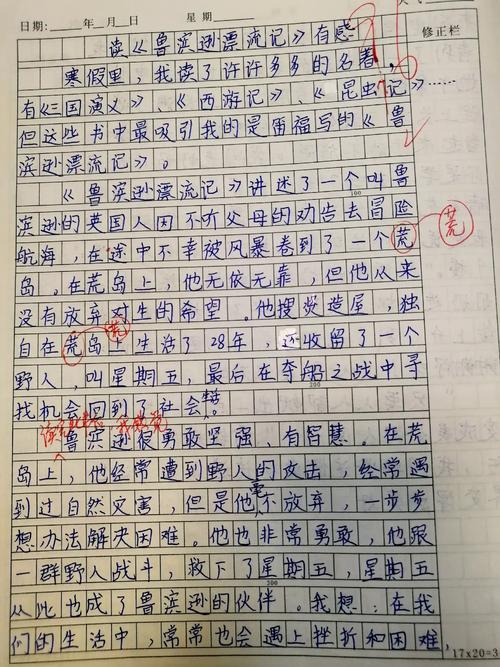 日期: 年 月 日 星期
修正栏
读《鲁滨逊漂流记》有感
寒假里，我读了许许多多的名著，
有《三国演义》、《西游记》、《昆虫记》……
但这些书中最吸引我的是笛福写的《鲁
滨逊漂流记》。
《鲁滨逊漂流记》讲述了一个叫鲁
100
滨逊的英国人因不听父母的劝告去冒险
航海，在途中不幸被风暴卷到了一个荒
荒
岛。在荒岛上，他无依无靠，但他从来
没有放弃对生的希望。他搜炭造屋，独
荒
自在荒岛上生活了28年，还收留了一个
野人，叫星期五，最后在夺船之战中寻
200
找机会回到了社会。
鲁滨逊很勇敢坚强、有智慧。在荒
岛上，他经常遭到野人的攻击，经常遇
到过自然灾害，但是他毫不放弃，一步步
想办法解决困难。他也非常勇敢，他跟
一群野人战斗，救下了星期五，星期五
300
从此也成了鲁滨逊的伙伴。我想：在我
们的生活中，常常也会遇上挫折和困难，
17×20=3